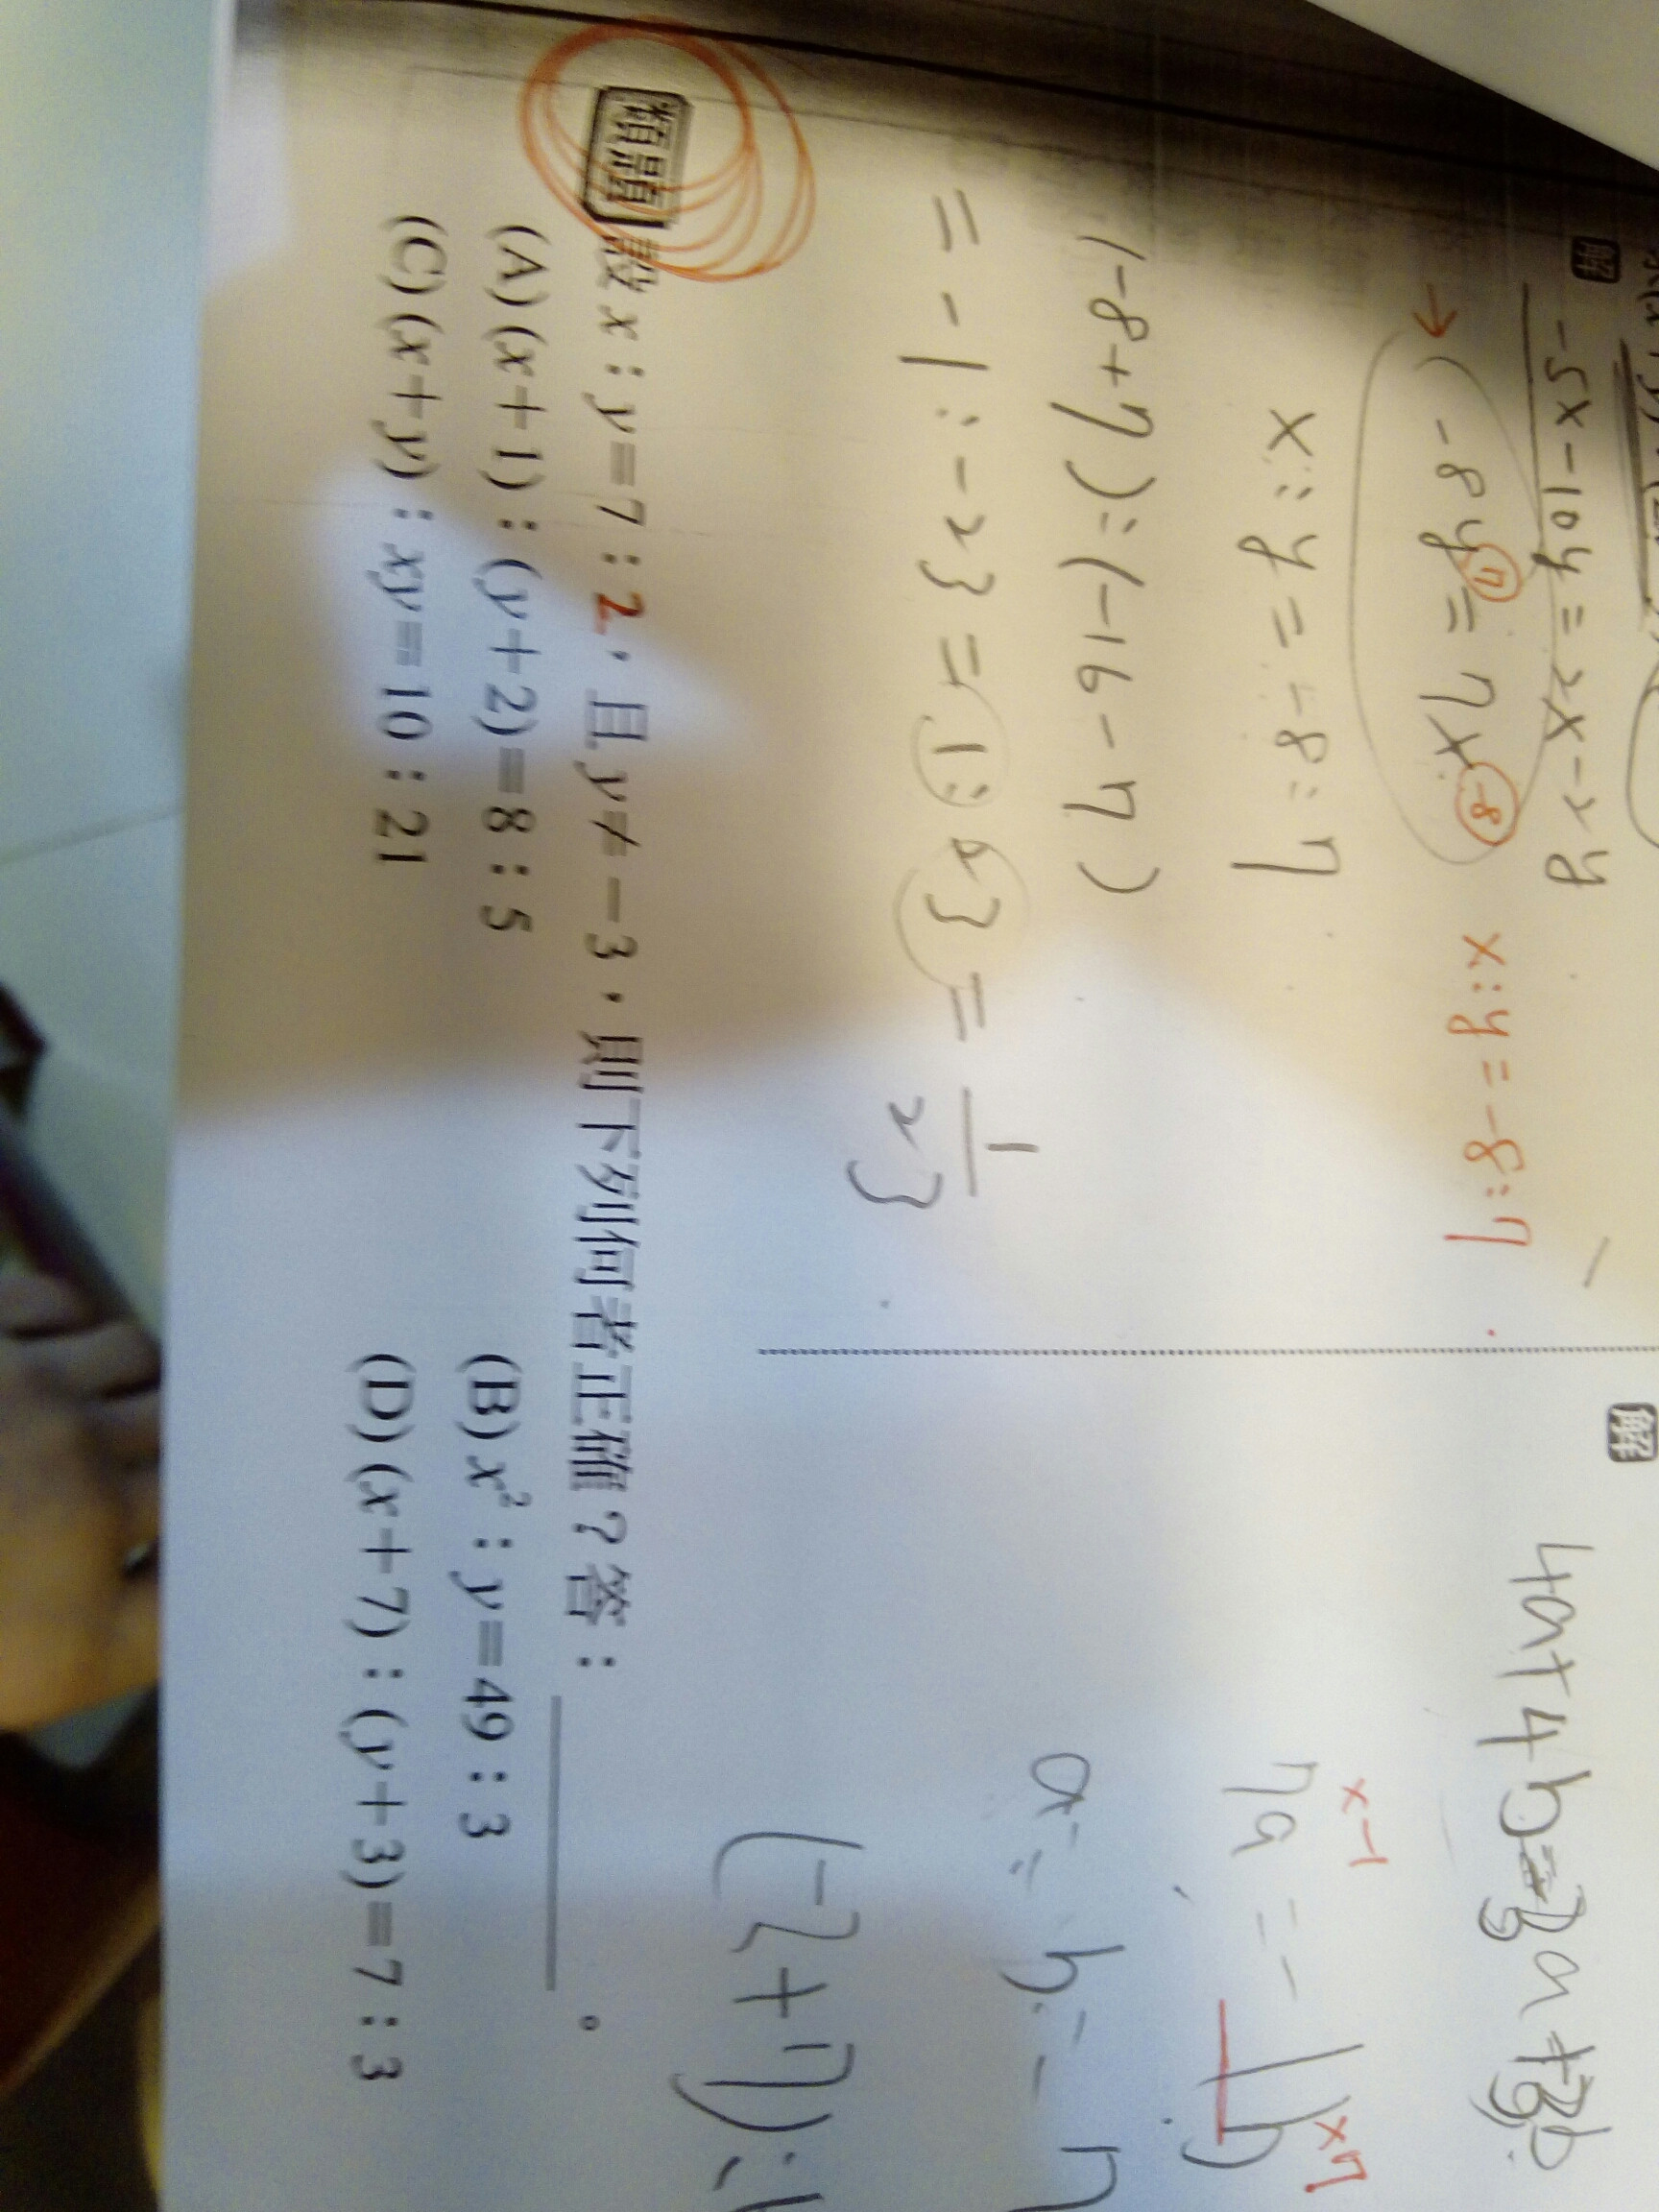 解
-5x-10y=2x-2y
-8y=7x
7
-8
x:y=-8:7
x:y=-8:7
(-8+7):(-16-7)
=-1:-23=1:23=1/23
解
x-1
x7
7a=-
a:b=-
(-2+7):(
類題 設x:y=7:2,且y≠-3,則下列何者正確?答:。
(A)(x+1):(y+2)=8:5
(B)x²:y=49:3
(C)(x+y):xy=10:21
(D)(x+7):(y+3)=7:3